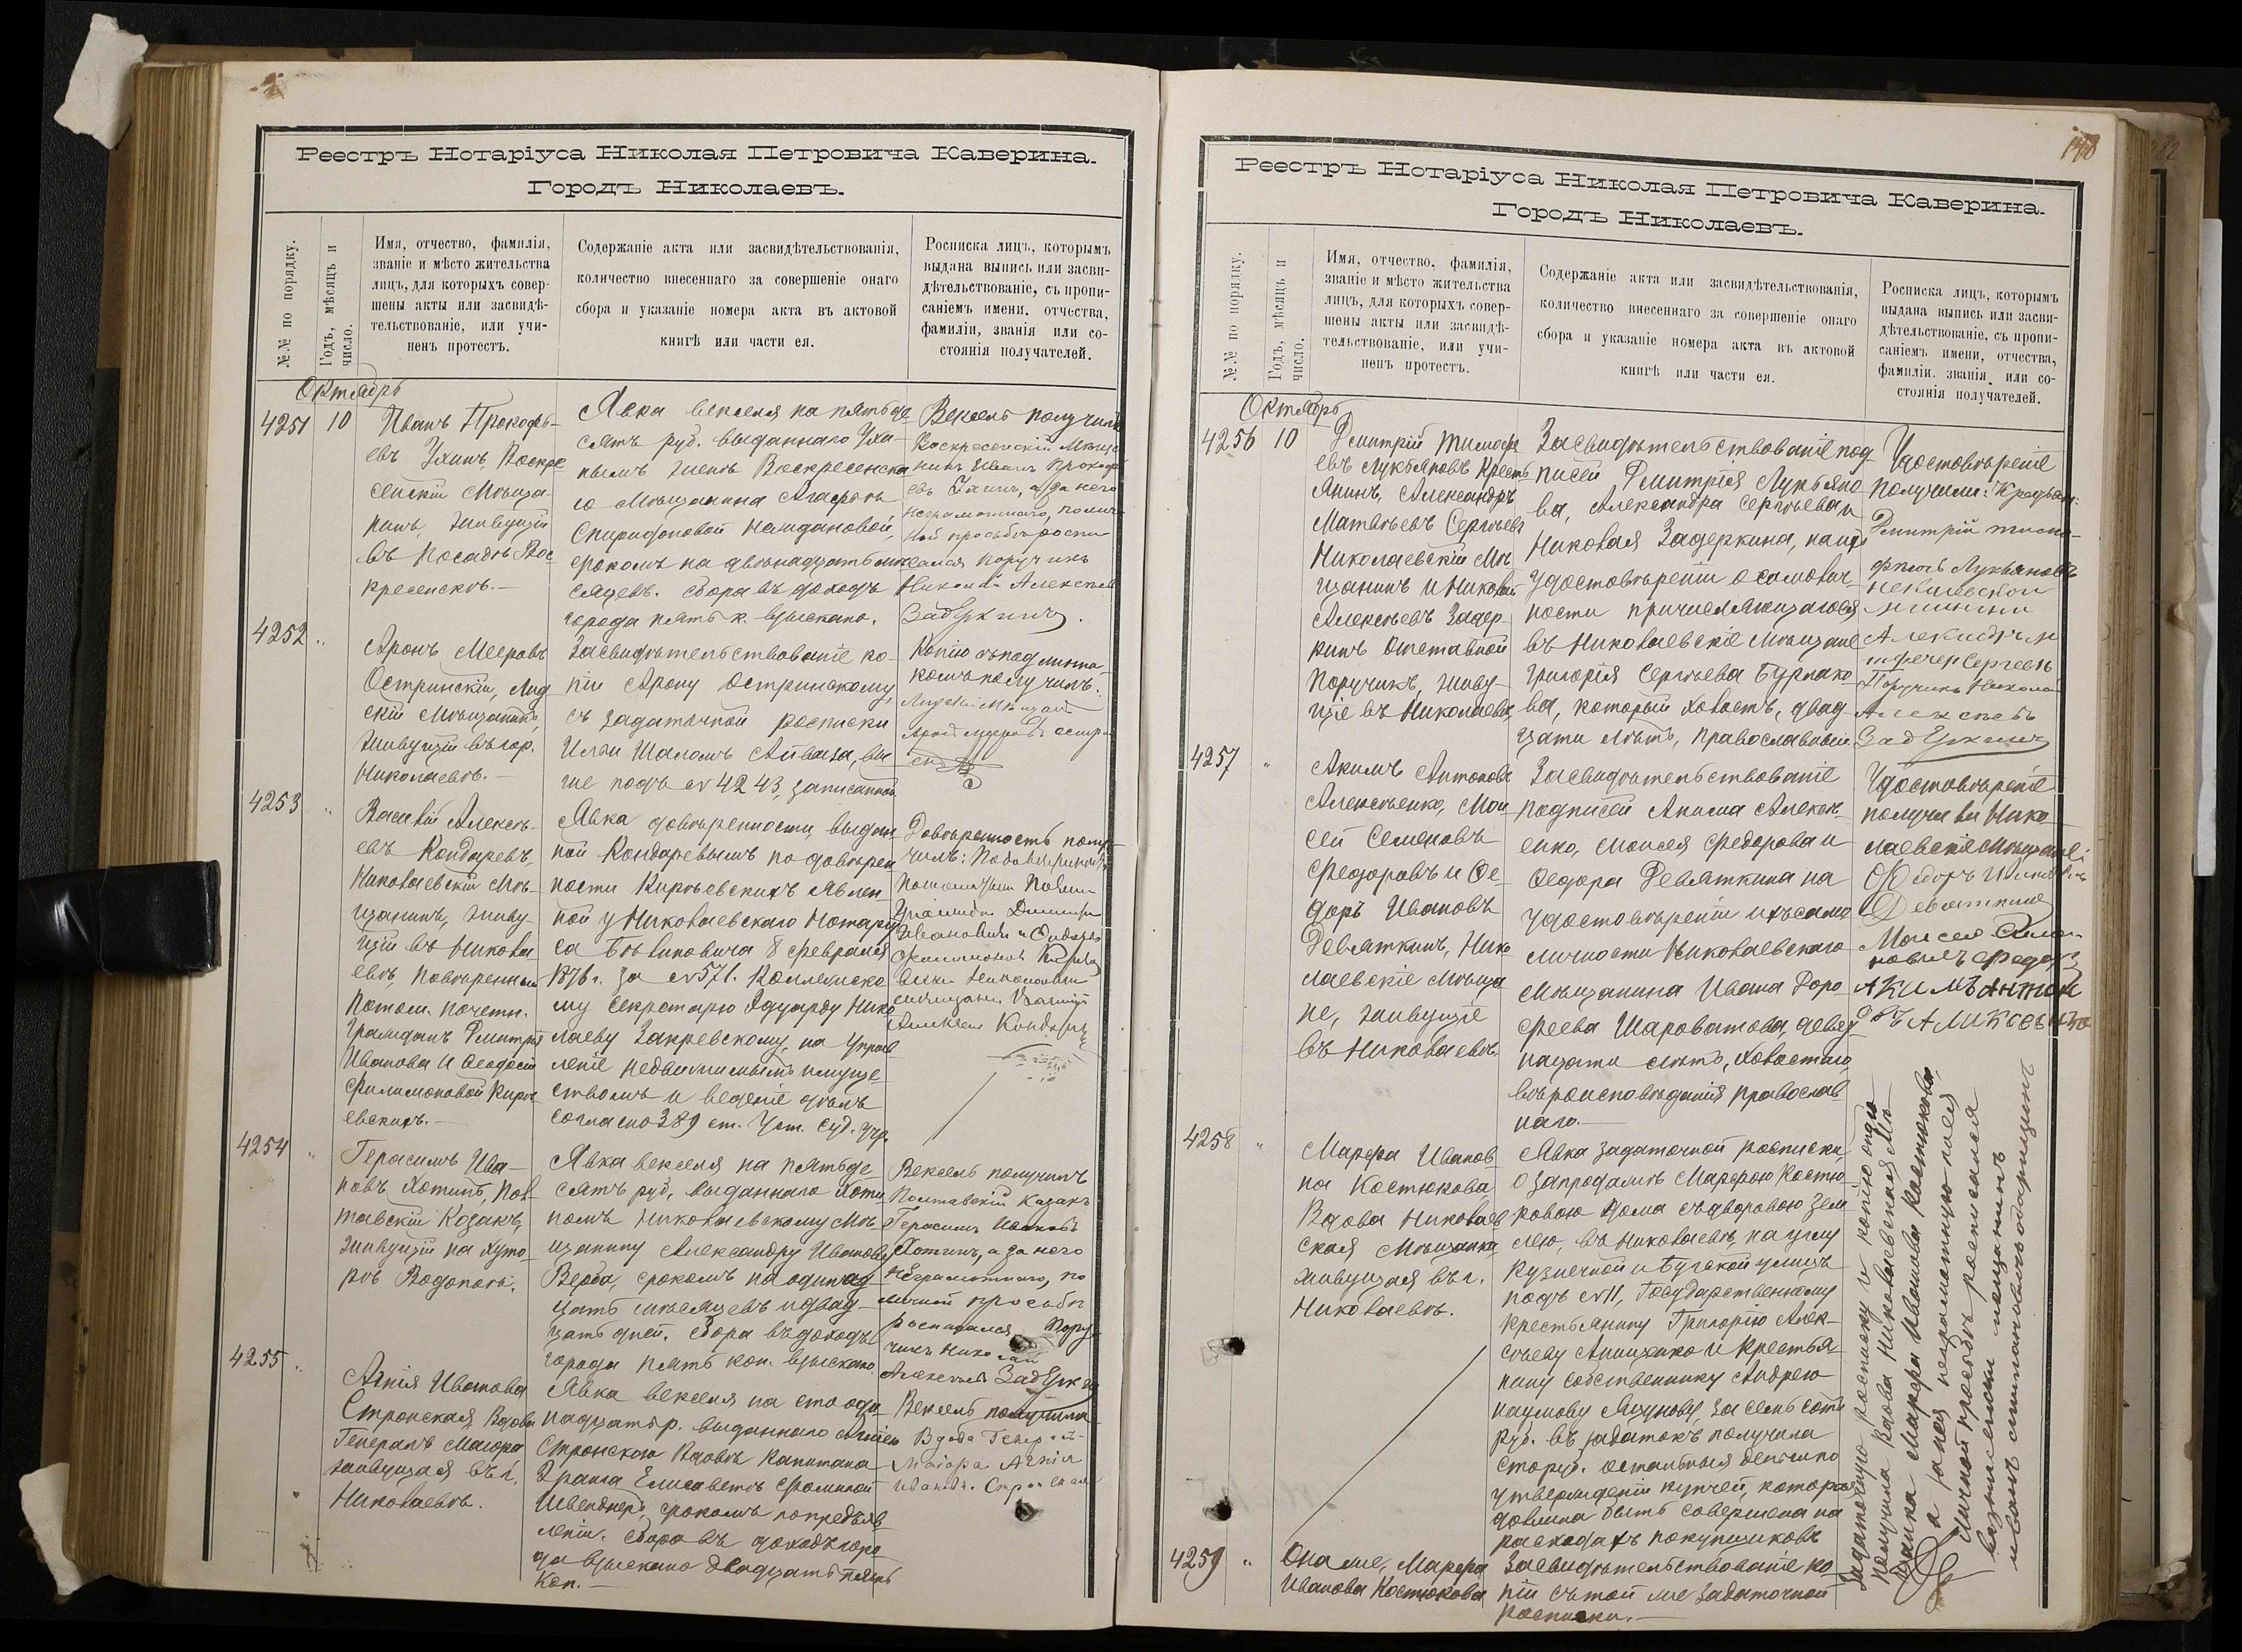 Реестръ Нотаріуса Николая Петровича Каверина.
Городъ Николаевъ.
№№ по порядку.
Годъ, мѣсяцъ и
число.
Имя, отчество, фамилія,
званіе и мѣсто жительства
лицъ, для которыхъ совер-
шены акты или засвидѣ-
тельствованіе, или учи-
ненъ протестъ.
Содержаніе акта или засвидѣтельствованія,
количество внесеннаго за совершеніе онаго
сбора и указаніе номера акта въ актовой
книгѣ или части ея.
Росписка лицъ, которымъ
выдана выпись или засви-
дѣтельствованіе, съ пропи-
саніемъ имени. отчества,
фамиліи, званія или со-
стоянія получателей.
Октябрь
4251
10
Иванъ Прокофь-
евъ Ухинъ, Воскре
сенскій Мѣща-
нинъ, живущій
въ посадѣ Вос
кресенскѣ.—
Явка векселя на пятьде-
сятъ руб. выданнаго Уха-
нымъ женѣ Воскресенска
го Мѣщанина Агафьѣ
Спиридоновой Наждановой,
срокомъ на двѣнадцать мѣ
сяцевъ. Сбора въ доходъ
города пять к. взыскано.
Вексель получилъ
Воскресенскій Мѣща
нинъ Иванъ Прокофь
евъ Ухинъ, а за него
неграмотнаго, по лич
ной просьбѣ роспи
сался поручикъ
Николай Алексѣев
Задеркинъ.
4252
"
Аронъ Мееровъ
Остринскій, Лид
скій Мѣщанинъ,
живущій въ гор.
Николаевѣ.—
Засвидѣтельствованіе ко-
піи Арону Остринскому,
съ задаточной росписки
Ильи Шаломъ Айваза, вы
ше подъ № 4243, записанной.
Копію съ подлинни-
комъ получилъ:
Лидскій Мѣщан
4253
"
Василій Алексѣ-
евъ Кондаревъ,
Николаевскій Мѣ-
щанинъ, живу-
щій въ Никола
евѣ, повѣренный
потом. почетн.
Гражданъ Дмитрія
Иванова и Феодосіи
Филимоновой Кирѣ
евскихъ.—
Явка довѣренности, выдан
ной Кондаревымъ по довѣрен
ности Кирѣевскихъ явлен
ной у Николаевскаго Нотарі
са 8 февраля
1876 г. за № 571. Коллежско
му Секретарю Эдуарду Нико
лаеву Закревскому, на управ
леніе недвижимымъ имуще-
ствомъ и веденіе дѣлъ
согласно 389 ст. Уст. Суд. Учр.
Довѣренность полу-
чилъ: По довѣренности
4254
"
Герасимъ Ива-
новъ Хотинъ, Пол-
тавскій Козакъ,
живущій на хуто-
рѣ Водопоѣ.
Явка векселя на пятьде
сятъ руб., выданнаго Хоти
нымъ Николаевскому Мѣ
щанину Александру Иванову
Верба, срокомъ на одиннад
цать мѣсяцевъ и двад-
цать дней. Сбора въ доходъ
города пять коп. взыскано.
Вексель получилъ
Полтавскій Казакъ
Герасимъ Ивановъ
Хотинъ, а за него
неграмотнаго, по
личной просьбѣ
росписался Пору
чикъ Николай
Алексѣевъ Задеркин
4255
"
Агнія Иванова
Стронская, Вдова
Генералъ Маіора
живущая въ г.
Николаевѣ.
Явка векселя на сто оди
надцать р. выданнаго Агніею
Стронскою Вдовѣ Капитана
2 ранга Елисаветѣ Фоминой
срокомъ по предъяв
леніи. Сбора въ доходъ горо
да взыскано двадцать пять
коп.—
Вексель получила
Вдова Генерал-
Маіора Агнія
Иванов. Стронская
Реестръ Нотаріуса Николая Петровича Каверина.
Городъ Николаевъ.
№№ по порядку.
Годъ, мѣсяцъ и
число.
Имя, отчество, фамилія,
званіе и мѣсто жительства
лицъ, для которыхъ совер-
шены акты или засвидѣ-
тельствованіе, или учи-
ненъ протестъ.
Содержаніе акта или засвидѣтельствованія,
количество внесеннаго за совершеніе онаго
сбора и указаніе номера акта въ актовой
книгѣ или части ея.
Росписка лицъ, которымъ
выдана выпись или засви-
дѣтельствованіе, съ пропи-
саніемъ имени, отчества,
фамиліи. званія или со-
стоянія получателей.
Октябрь
4256
10
Дмитрій Тимофе
евъ Лукьяновъ Кресть
янинъ, Александръ
Матвѣевъ Сергѣевъ
Николаевскій Мѣ
щанинъ и Николай
Алексѣевъ Задер-
кинъ Отставной
Поручикъ, живу-
щіе въ Николаевѣ,
Засвидѣтельствованіе под-
писей Дмитрія Лукьяно
ва, Александра Сергѣева и
Николая Задеркина, на
удостовѣреніи о самолич-
ности причисляющагося
въ Николаевскіе Мѣщане
Григорія Сергѣева Бурлако-
ва, который холостъ, двад-
цати лѣтъ, православный
Удостовѣреніе
получили: Крестьян:
Дмитрій Тимо-
фѣевъ Лукьяновъ
Поручикъ Николай
Алексѣевъ
Задеркинъ
4257
"
Акимъ Антоновъ
Алексѣенко, Мои
сей Семеновъ
Федоровъ и Фе-
доръ Ивановъ
Девяткинъ, Нико
лаевскіе Мѣща
не, живущіе
въ Николаевѣ.
Засвидѣтельствованіе
подписей Акима Алексѣ-
енко, Моисея Федорова и
Федора Девяткина на
удостовѣреніи ихъ само
личности Николаевскаго
Мѣщанина Ивана Доро-
феева Шароватова, девят
надцати лѣтъ, холостаго,
вѣроисповѣданія православ
наго.—
Удостовѣреніе
получили Нико-
лаевскіе Мѣщане:
Федоръ Ивановъ
Девяткинъ
Моисей Семе-
новичъ Федоро
Акимъ Антон
овъ Аликсеенко
4258
"
Марфа Иванов
на Костюкова
Вдова Николаев
ская Мѣщанка
живущая въ г.
Николаевѣ.
Явка задаточной росписки,
о запродажѣ Марфою Костю-
ковою дома съ дворовою зем
лею, въ Николаевѣ, на углу
Кузнечной и Бугской улицъ
подъ № 11, Государственному
крестьянину Григорію Алек-
сѣеву Анищенко и крестья-
нину собственнику Андрею
Наумову Ляшунову, за семь сотъ
руб. въ задатокъ получила
сто руб. остальныя деньги по
утвержденіи купчей, которая
должна быть совершена на
расходахъ покупщиковъ
4259
"
Она же, Марфа
Иванова Костюкова
Засвидѣтельствованіе ко-
піи съ той же задаточной
росписки.—
Задаточную росписку и копію оной
получила вдова Николаевская Мѣ-
щанка Марфа Иванова Костюкова,
а за нея неграмотную по ея
личной просьбѣ росписался
вознесенскій мещанинъ